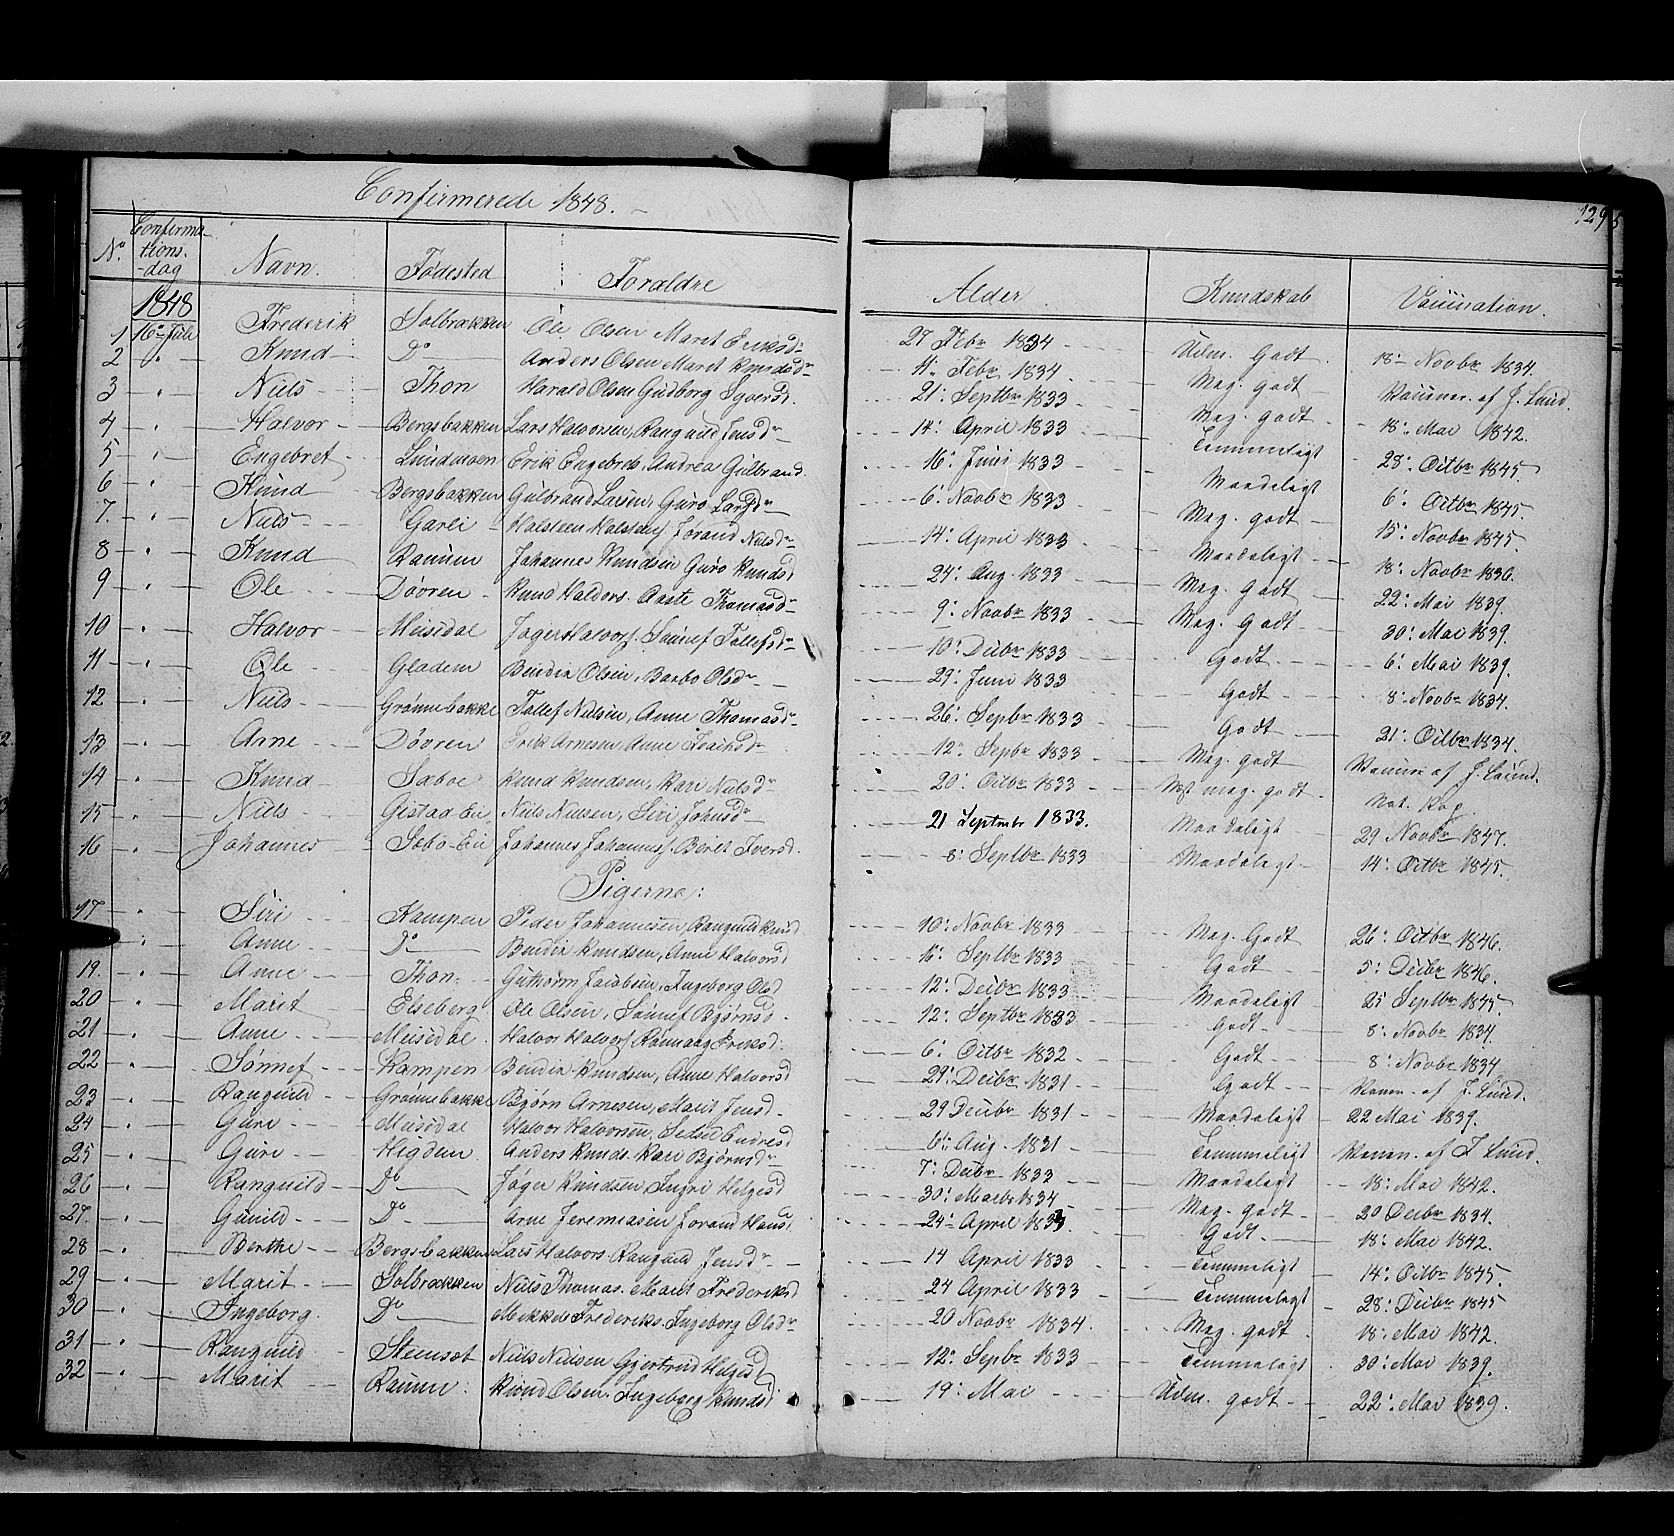 Confirmerede 1848.
129
No. Confirmationsdag Navn. Fødested Forældre Alder Kundskab Vaccination.
1848
1 16de Julii Frederik Solbrækken Ole Olsen Maret Eriksdr 27 Febr 1834 Udm. Godt 18 Novbr 1834.
2 " Knud Do Anders Olsen Maret Knudsdr 11. Febr 1834. Meg. godt Vacciner. af J. Lund.
3 " Niels Thon Harald Olsen Gudborg Syversd. 21. Septbr 1833 Meg. godt 18. Mai 1842.
4 " Halvor Bergsbakken Lars Halvorsen, Rangnild Jensdr 14. April 1833 Temmeligt 28. Octbr 1845.
5 " Engebret Lundmoen Erik Engebrets. Andrea Gulbrand 16. Juni 1833 Maadeligt 6. Octbr 1845.
6 " Knud Bergsbakken Gulbrand Larsen, Guro Larsdr 6. Novbr 1833 Meg. godt 15. Novbr 1845.
7. " Niels Garli Halsteen Halstens. Jorand Nielsdr 14. April 1833 Maadeligt 18. Novbr 1836.
8 " Knud Ranum Johannes Knudsen Guro Knudsd 24. Aug. 1833 Meg. godt 22. Mai 1839.
9 " Ole Døvren Knud Haldors. Aaste Thomasdr 9. Novbr 1833 Meg. Godt 30. Mai 1839.
10 " Halvor Meisdal Jøger Halvors. Sønnef Tollefsdr 10. Decbr 1833 Godt 6. Mai 1839.
11 " Ole Gladem Bendix Olsen, Barbo Olsdr 29. Juni 1833 Godt 8. Novbr 1834.
12 " Niels Grønnebakke Tollef Nielsen, Anne Thomasdr 26. Sepbr 1833 Godt 21. Octbr 1834.
13 " Arne Døvren Erik Arnesen, Anne 12. Sepbr 1833 Meg. godt Vaccin. af J. Lund.
14 " Knud Sæboe Knud Knudsen, Kari Nielsdr 20. Octbr 1833 meg. godt Nat. Kop.
15 " Niels Gistad-Ei Niels Nielsen, Siri Johnsdr 21 Septembr 1833. Maadeligt 29 Novbr 1847.
16 " Johannes Sæbø-Ei Johannes Johannes. Berit Iversd. 8. Septbr 1833 Maadeligt 14. Octbr 1845.
Pigerne:
17 " Siri Kampen Peder Johannesen, Rangnild Knud 10. Novbr 1833 Meg. Godt 26. Octbr 1846.
" Anne Do Bendix Knudsen, Anne Halvorsd 16. Septbr 1833 Godt 5. Decbr 1846.
19. " Anne Thon Guthorm Jacobsen, Ingeborg Olsd 12. Decbr 1833 Maadeligt 25 Septbr 1845.
20 " Marit Elseberg Ole Olsen, Sønnef Bjørnsd. 12. Septbr 1833 Godt 8. Novbr 1834.
21 " Anne Meisdal Halvor Halvors. Rønnaug Eriksd. 6. Octbr 1832 Godt 8. Novbr 1834
22 " Sønnef Kampen Bendix Knudsen, Anne Halvorsd 29. Decbr 1831 Godt Vaccin. af J. Lund.
23 " Rangnild Grønnebakke Bjørn Arnesen, Marit Jensd. 29 Decbr 1831 Maadeligt 22 Mai 1839.
24 " Guri Meisdal Halvor Halvorsen, Sidsel Endresd 6. Aug. 1831 Temmeligt Vaccin. af J. Lund.
25 " Guri Høgden Anders Knuds. Kari Bjørnsdr 7. Decbr 1833 Maadeligt 18. Mai 1842.
26 " Rangnild Do Jøger Knudsen Ingri Helgesd 30. Marts 1834 Meg. godt 20 Decbr 1834.
27. " Gunild Do Arne Jeremiasen Jorand Hansd 24. April 1833 Godt 18. Mai 1842.
28 " Berthe Bergsbakken Lars Halvors. Rangnild Jensdr 14 April 1833 Temmeligt 14. Octbr 1845.
29 " Marit Solbrækken Niels Thomas. Marit Frederiksd 24 April 1833 Temmeligt 28. Decbr 1845
30 " Ingeborg. Do Mikkel Frederiks. Ingeborg Olsdr 20 Novbr 1834. Meg. godt 18. Mai 1842.
31 " Rangnild Steensæt Niels Nielsen Gjertrud Helgesd 12. Sepbr 1833 Temmeligt 30. Mai 1839.
32 " Marit Ranum. Eivind Olsen. Ingeborg Knudsd 19. Mai Udm. godt 22. Mai 1839.